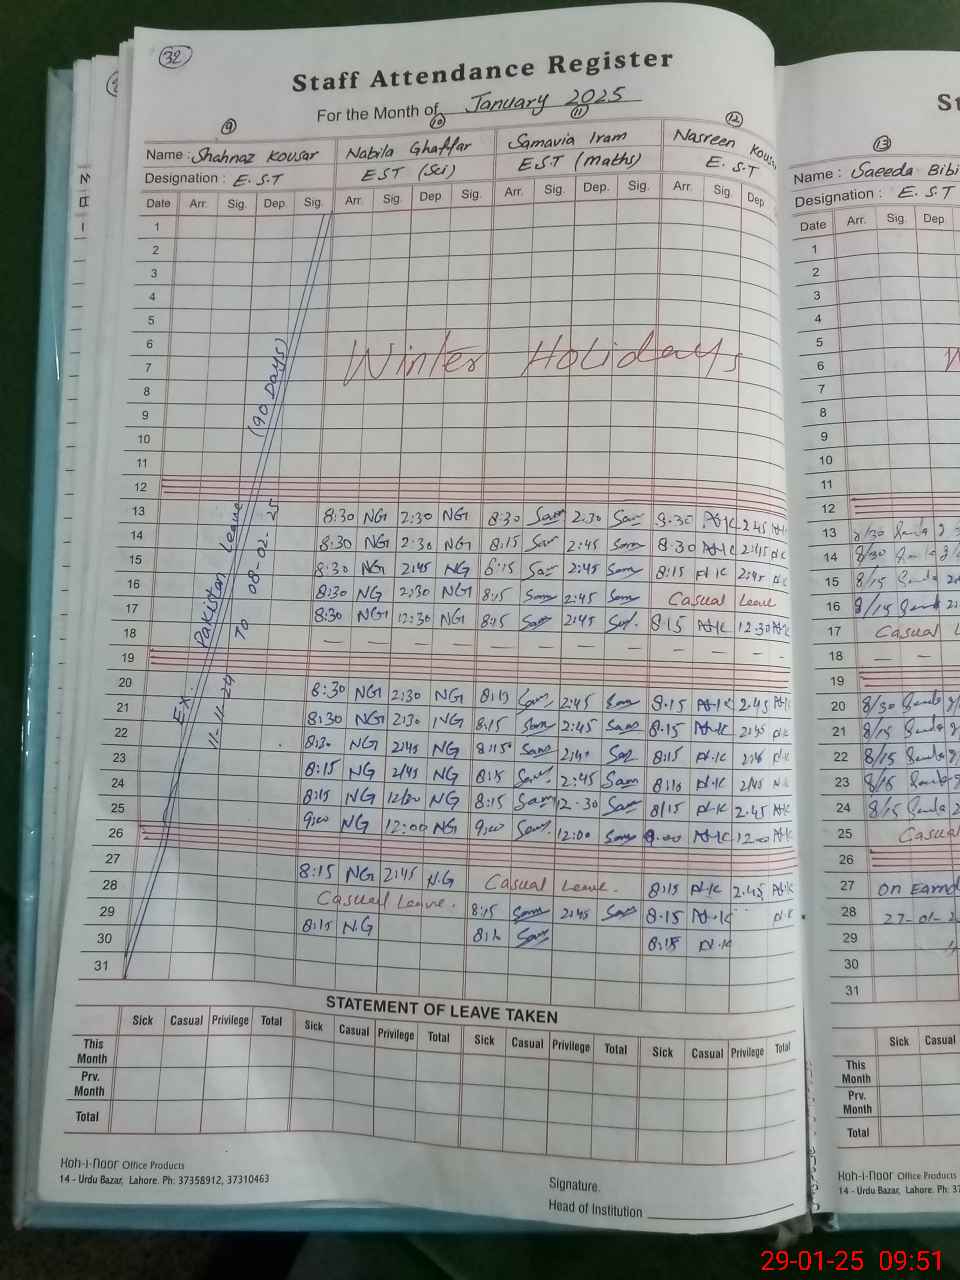 32
Staff Attendance Register
For the Month of January 2025
9 10 11 12
Name : Shahnaz Kousar Nabila Ghaffar Samavia Iram Nasreen Kousa
Designation : E.S.T EST (Sci) E.S.T (maths) E.S.T
Date Arr. Sig. Dep. Sig. Arr. Sig. Dep Sig. Arr. Sig. Dep. Sig. Arr. Sig. Dep
1
2
3
4
5
6
7 Winter Holidays
8
9
10
11
12
13 8:30 NG 2:30 NG 8:30 Sam 2:30 Sam 8.30 N.K 2.45 N.K
14 8:30 NG 2:30 NG 8:15 Sam 2:45 Sam 8.30 N.K 2:45 N.K
15 8:30 NG 2:45 NG 8:15 Sam 2:45 Sam 8:15 N.K 2:45 N.K
16 8:30 NG 2:30 NG 8:15 Sam 2:45 Sam Casual Leave
17 8:30 NG 12:30 NG 8:15 Sam 2:45 8.15 N.K 12.30 N.K
18 — — — — — — — — — — — —
19
20 8:30 NG 2:30 NG 8:15 Sam 2:45 Sam 8.15 N.K 2.45 N.K
21 8:30 NG 2:30 NG 8:15 Sam 2:45 Sam 8.15 N.K 2:45 N.K
22 8:30 NG 2:45 NG 8:15 Sam 8:15 N.K N.K
23 8:15 NG 2:45 NG 8:15 Sam 2:45 Sam N.K 2:45 N.K
24 8:15 NG NG 8:15 Sam 12:30 Sam 8:15 N.K 2.45 N.K
25 9:00 NG 12:00 NG 9:00 Sam 12:00 Sam 9.00 N.K 12.00 N.K
26
27 8:15 NG 2:45 N.G Casual Leave. 8:15 N.K 2.45 N.K
28 Casual Leave. 8:15 Sam 2:45 Sam 8.15 N.K N.K
29 8:15 N.G Sam 8:15 N.K
30
31
Ex. Pakistan Leave (90 Days)
11-11-24 To 08-02-25
STATEMENT OF LEAVE TAKEN
Sick Casual Privilege Total Sick Casual Privilege Total Sick Casual Privilege Total Sick Casual Privilege Total
This Month
Prv. Month
Total
Koh-i-Noor Office Products
14 - Urdu Bazar, Lahore. Ph: 37358912, 37310463
Signature.
Head of Institution
St
13
Name : Saeeda Bibi
Designation : E.S.T
Date Arr. Sig. Dep
1
2
3
4
5
6 W
7
8
9
10
11
12
13 8/30
14 8/30
15 8/15
16 8/15
17 Casual L
18 — —
19
20 8/30
21 8/15
22 8/15
23 8/15
24 8/15
25 Casual
26
27 on Earne
28 27-01-2
29
30
31
Sick Casual
This Month
Prv. Month
Total
Koh-i-Noor Office Products
14 - Urdu Bazar, Lahore. Ph: 37
29-01-25 09:51